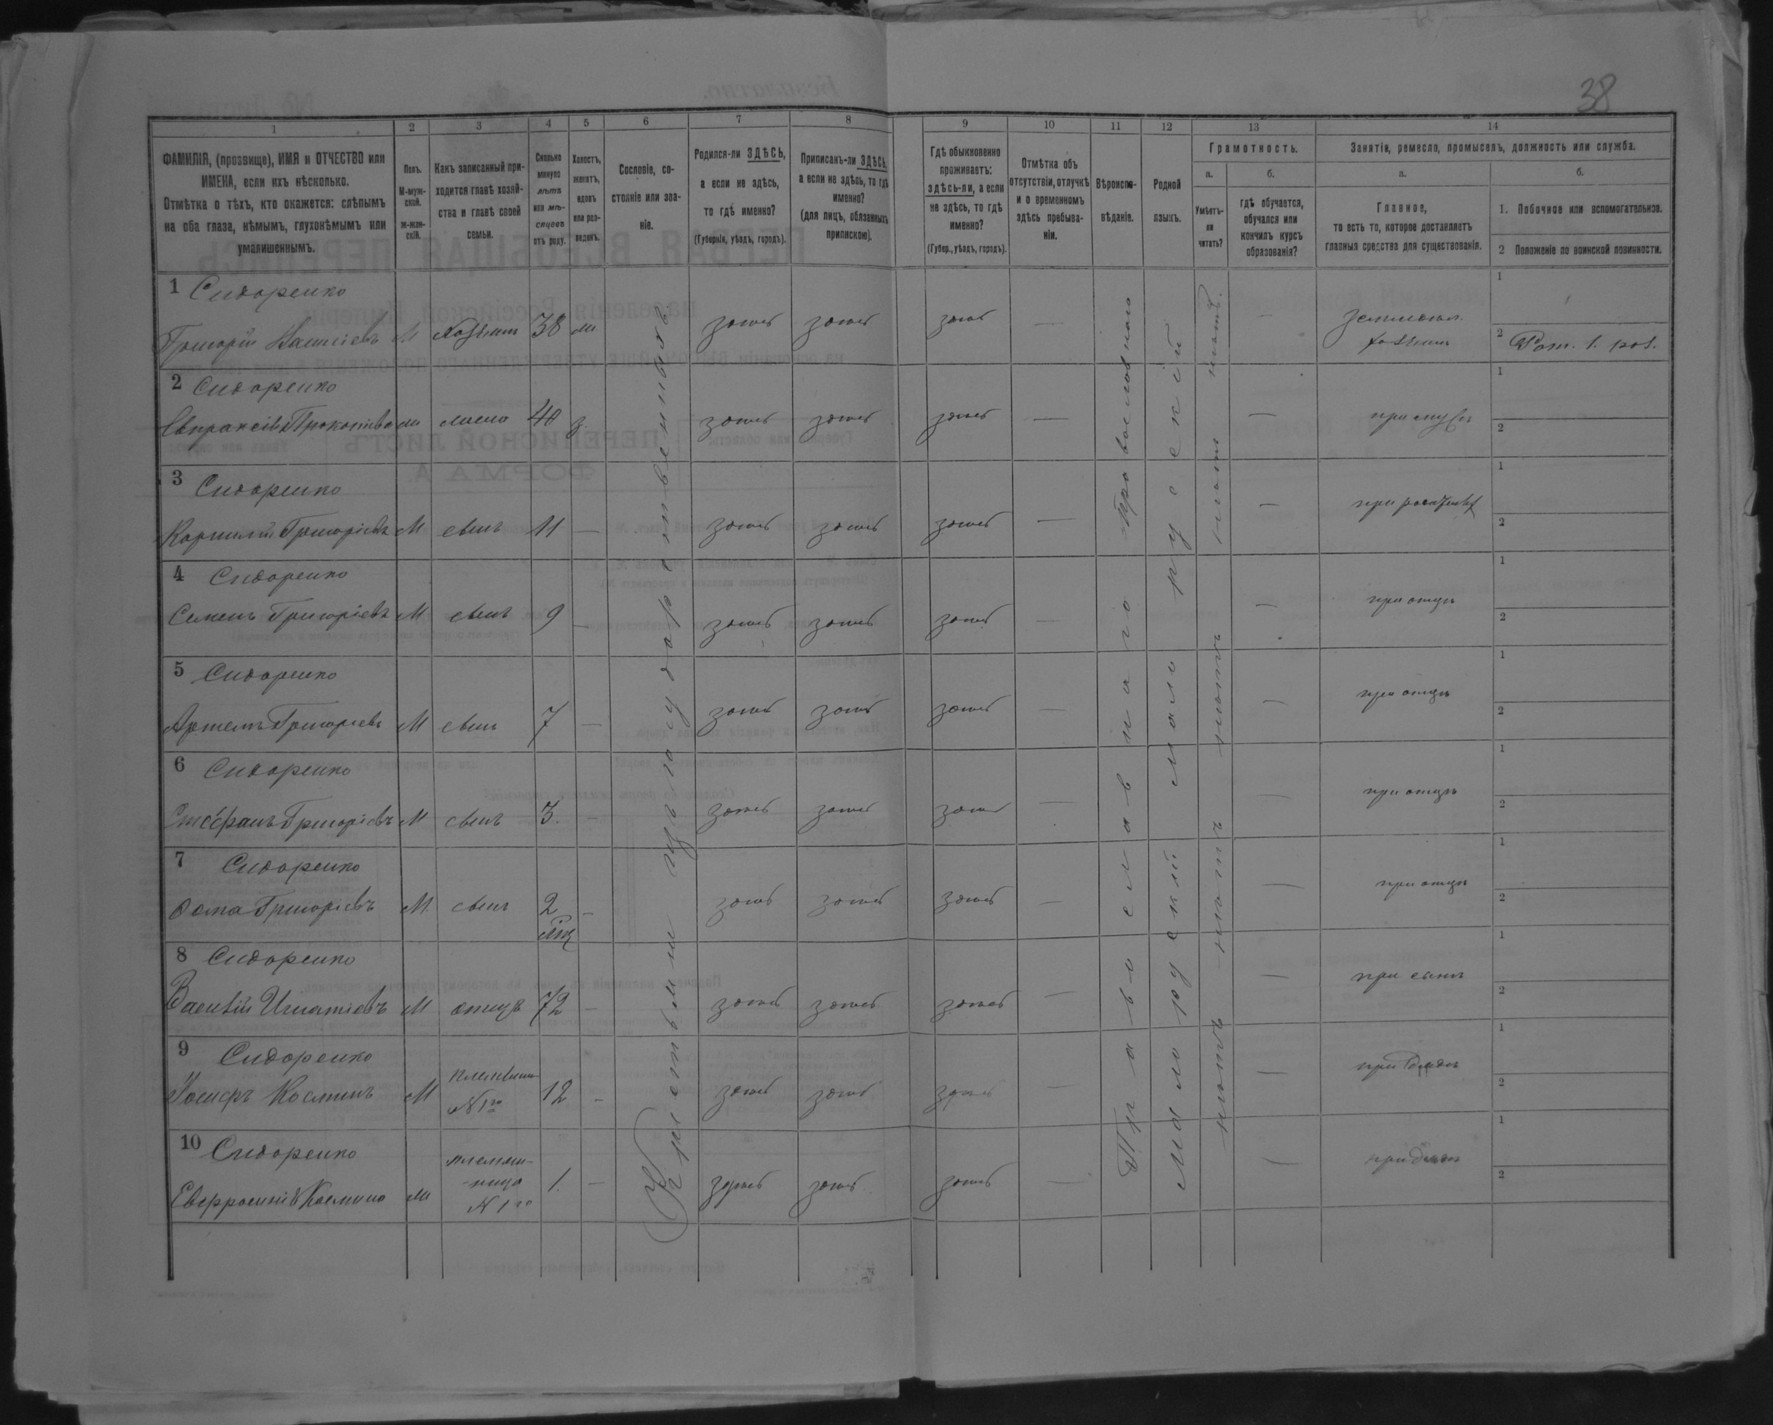 38
1 2 3 4 5 6 7 8 9 10 11 12 13 14
ФАМИЛІЯ, (прозвище), ИМЯ и ОТЧЕСТВО или ИМЕНА, если ихъ нѣсколько.
Отмѣтка о тѣхъ, кто окажется: слѣпымъ на оба глаза, нѣмымъ, глухонѣмымъ или умалишеннымъ.
Полъ.
М-муж-
ской.
Ж-жен-
скій.
Какъ записанный при-
ходится главѣ хозяй-
ства и главѣ своей
семьи.
Сколько
минуло
лѣтъ
или мѣ-
сяцевъ
отъ роду.
Холостъ,
женатъ,
вдовъ
или раз-
веденъ.
Сословіе, со-
стояніе или зва-
ніе.
Родился-ли ЗДѢСЬ,
а если не здѣсь,
то гдѣ именно?
(Губернія, уѣздъ, городъ).
Приписанъ-ли ЗДѢСЬ,
а если не здѣсь, то гдѣ
именно?
(для лицъ, обязанныхъ
припискою).
Гдѣ обыкновенно
проживаетъ:
здѣсь-ли, а если
не здѣсь, то гдѣ
именно?
(Губер., уѣздъ, городъ).
Отмѣтка объ
отсутствіи, отлучкѣ
и о временномъ
здѣсь пребыва-
ніи.
Вѣроиспо-
вѣданіе.
Родной
языкъ.
Грамотность.
а.
Умѣетъ-
ли
читать?
б.
гдѣ обучается,
обучался или
кончилъ курсъ
образованія?
Занятіе, ремесло, промыселъ, должность или служба.
а.
Главное,
то есть то, которое доставляетъ
главныя средства для существованія.
б.
1. Побочное или вспомогательное.
2 Положеніе по воинской повинности.
1 Сидоренко
Григорій Василіевъ М хозяинъ 38 ж здесь здесь здесь — —
хозяинъ
2 Рат. 1. раз.
2 Сидоренко
Евпраксія Прокопіева ж жена 40 з здесь здесь здесь — — при мужѣ
3 Сидоренко
Корнилій Григоріевъ М сынъ 11 — здесь здесь здесь — —
4 Сидоренко
Семенъ Григоріевъ М сынъ 9 — здесь здесь здесь — — при отцѣ
5 Сидоренко
Артемъ Григоріевъ М сынъ 7 — здесь здесь здесь — — при отцѣ
6 Сидоренко
Стефанъ Григоріевъ М сынъ 3. — здесь здесь здесь — — при отцѣ
7 Сидоренко
Фома Григоріевъ М. сынъ 2 — здесь здесь здесь — — при отцѣ
8 Сидоренко
Василій Игнатіевъ М отецъ 72 — здесь здесь здесь — — при сынѣ
9 Сидоренко
Іосифъ Косминъ М племян- N 1го 12 — здесь здесь здесь — — при дядѣ
10 Сидоренко
Евфросинія Космина ж племян-
-ница
N 1го 1. — здесь здесь здесь — — при дядѣ
Православнаго Православнаго
Малорускій Малорускій
неѣтъ неѣтъ